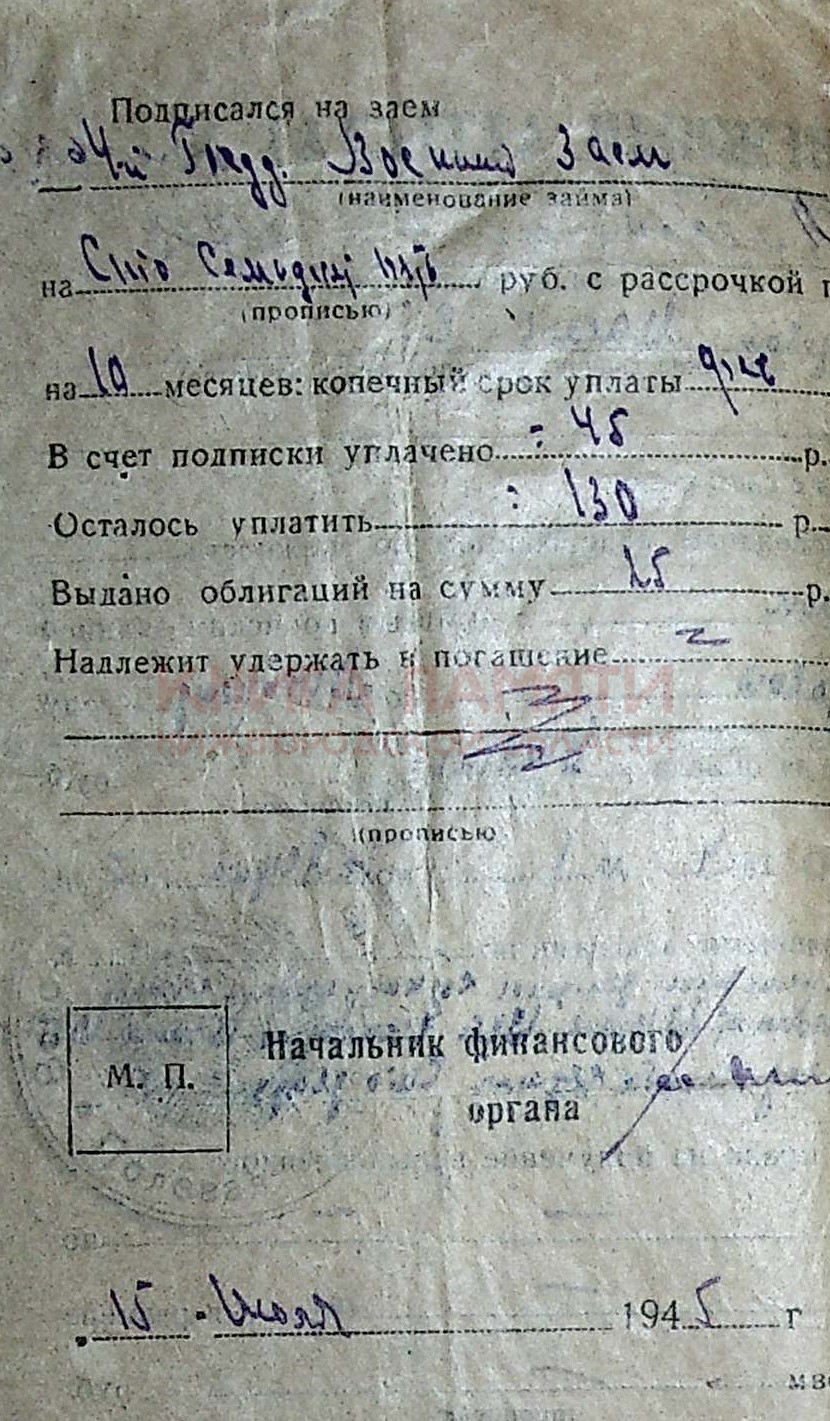 Подписался на заем
4-й Госуд. Военный Заем
(наименование займа)
на Сто Семьдесят пять руб. с рассрочкой
(прописью)
на 10 месяцев: конечный срок уплаты
В счет подписки уплачено : 45 р.
Осталось уплатить : 130 р.
Выдано облигаций на сумму 25 р.
Надлежит удержать в погашение
КНИГА ПАМЯТИ
НИЖЕГОРОДСКОЙ ОБЛАСТИ
(прописью
М. П.
Начальник финансового
органа
15 Июля 1945 г